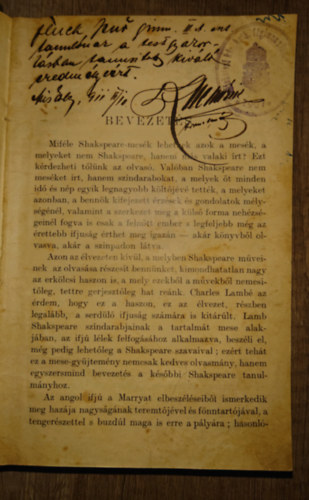 Jenő gimn. II. o.
tanulónak a
eredményért.
BEVEZETÉS.
Miféle Shakspeare-mesék lehetnek azok a mesék, a
melyeket nem Shakspeare, hanem más valaki írt? Ezt
kérdezheti tőlünk az olvasó. Valóban Shakspeare nem
meséket írt, hanem színdarabokat, a melyek őt minden
idő és nép egyik legnagyobb költőjévé tették, a melyeket
azonban, a bennök kifejezett érzések és gondolatok mély-
ségénél, valamint a szerkezet meg a külső forma nehézsé-
geinél fogva is csak a felnőtt ember s legfeljebb még az
érettebb ifjuság érthet meg igazán — akár könyvből ol-
vasva, akár a szinpadon látva.
Azon az élvezeten kívül, a melyben Shakspeare művei-
nek az olvasása részesít bennünket, kimondhatatlan nagy
az erkölcsi haszon is, a mely ezekből a művekből nemesi-
tőleg, tettre gerjesztőleg hat reánk. Charles Lambé az
érdem, hogy ez a haszon, ez az élvezet, részben
legalább, a serdülő ifjuság számára is kitárult. Lamb
Shakspeare színdarabjainak a tartalmát mese alak-
jában, az ifjú lélek felfogásához alkalmazva, beszéli el,
még pedig lehetőleg a Shakspeare szavaival; ezért tehát
ez a mese-gyűjtemény nemcsak kedves olvasmány, hanem
egyszersmind bevezetés a későbbi Shakspeare tanul-
mányhoz.
Az angol ifjú a Marryat elbeszéléseiből ismerkedik
meg hazája nagyságának teremtőjével és fönntartójával, a
tengerészettel s buzdúl maga is erre a pályára; hasonló-